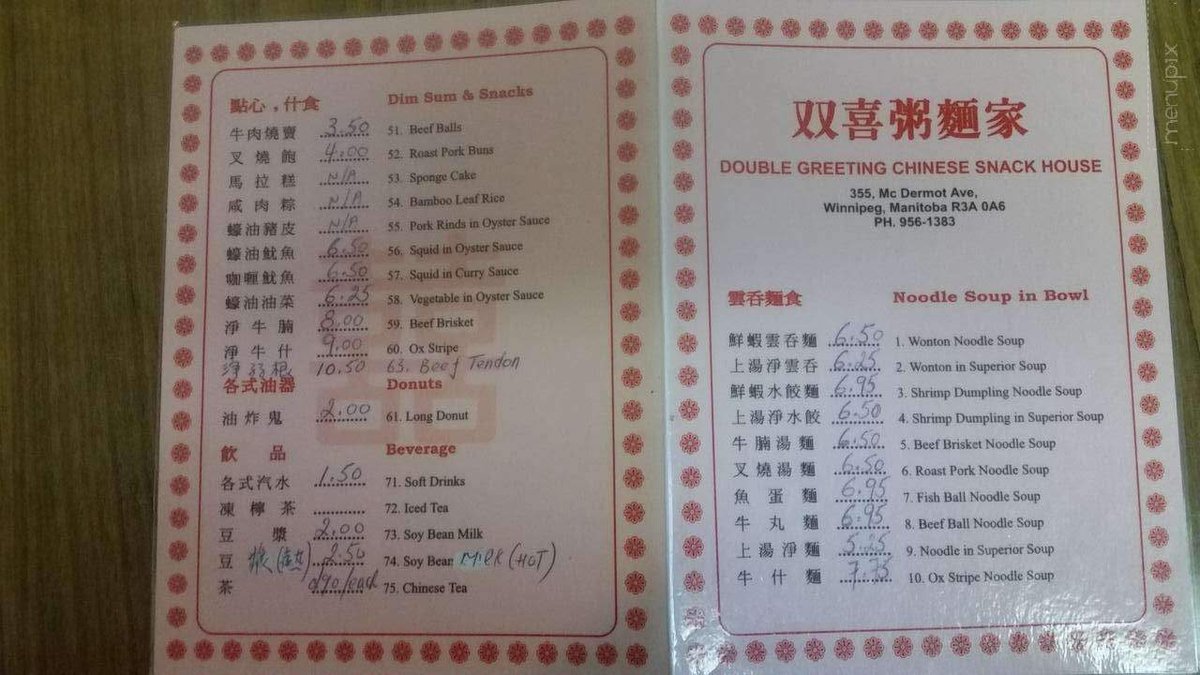 點心，什食 Dim Sum & Snacks
牛肉燒賣 3.50 51. Beef Balls
叉燒飽 4.00 52. Roast Pork Buns
馬拉糕 N/A 53. Sponge Cake
咸肉粽 N/A 54. Bamboo Leaf Rice
蠔油豬皮 N/A 55. Pork Rinds in Oyster Sauce
蠔油魷魚 6.50 56. Squid in Oyster Sauce
咖喱魷魚 6.50 57. Squid in Curry Sauce
蠔油油菜 6.25 58. Vegetable in Oyster Sauce
淨牛腩 8.00 59. Beef Brisket
淨牛什 9.00 60. Ox Stripe
10.50 63. Beef Tendon
各式油器 Donuts
油炸鬼 2.00 61. Long Donut
飲品 Beverage
各式汽水 1.50 71. Soft Drinks
凍檸茶 72. Iced Tea
豆漿 2.00 73. Soy Bean Milk
豆漿(热) 2.50 74. Soy Bean Milk (HOT)
茶 .90/each 75. Chinese Tea
双喜粥麵家
DOUBLE GREETING CHINESE SNACK HOUSE
355, Mc Dermot Ave,
Winnipeg, Manitoba R3A 0A6
PH. 956-1383
雲吞麵食 Noodle Soup in Bowl
鮮蝦雲吞麵 6.50 1. Wonton Noodle Soup
上湯淨雲吞 6.25 2. Wonton in Superior Soup
鮮蝦水餃麵 6.95 3. Shrimp Dumpling Noodle Soup
上湯淨水餃 6.50 4. Shrimp Dumpling in Superior Soup
牛腩湯麵 6.50 5. Beef Brisket Noodle Soup
叉燒湯麵 6.50 6. Roast Pork Noodle Soup
魚蛋麵 6.95 7. Fish Ball Noodle Soup
牛丸麵 6.95 8. Beef Ball Noodle Soup
上湯淨麵 5.25 9. Noodle in Superior Soup
牛什麵 7.75 10. Ox Stripe Noodle Soup
menupix